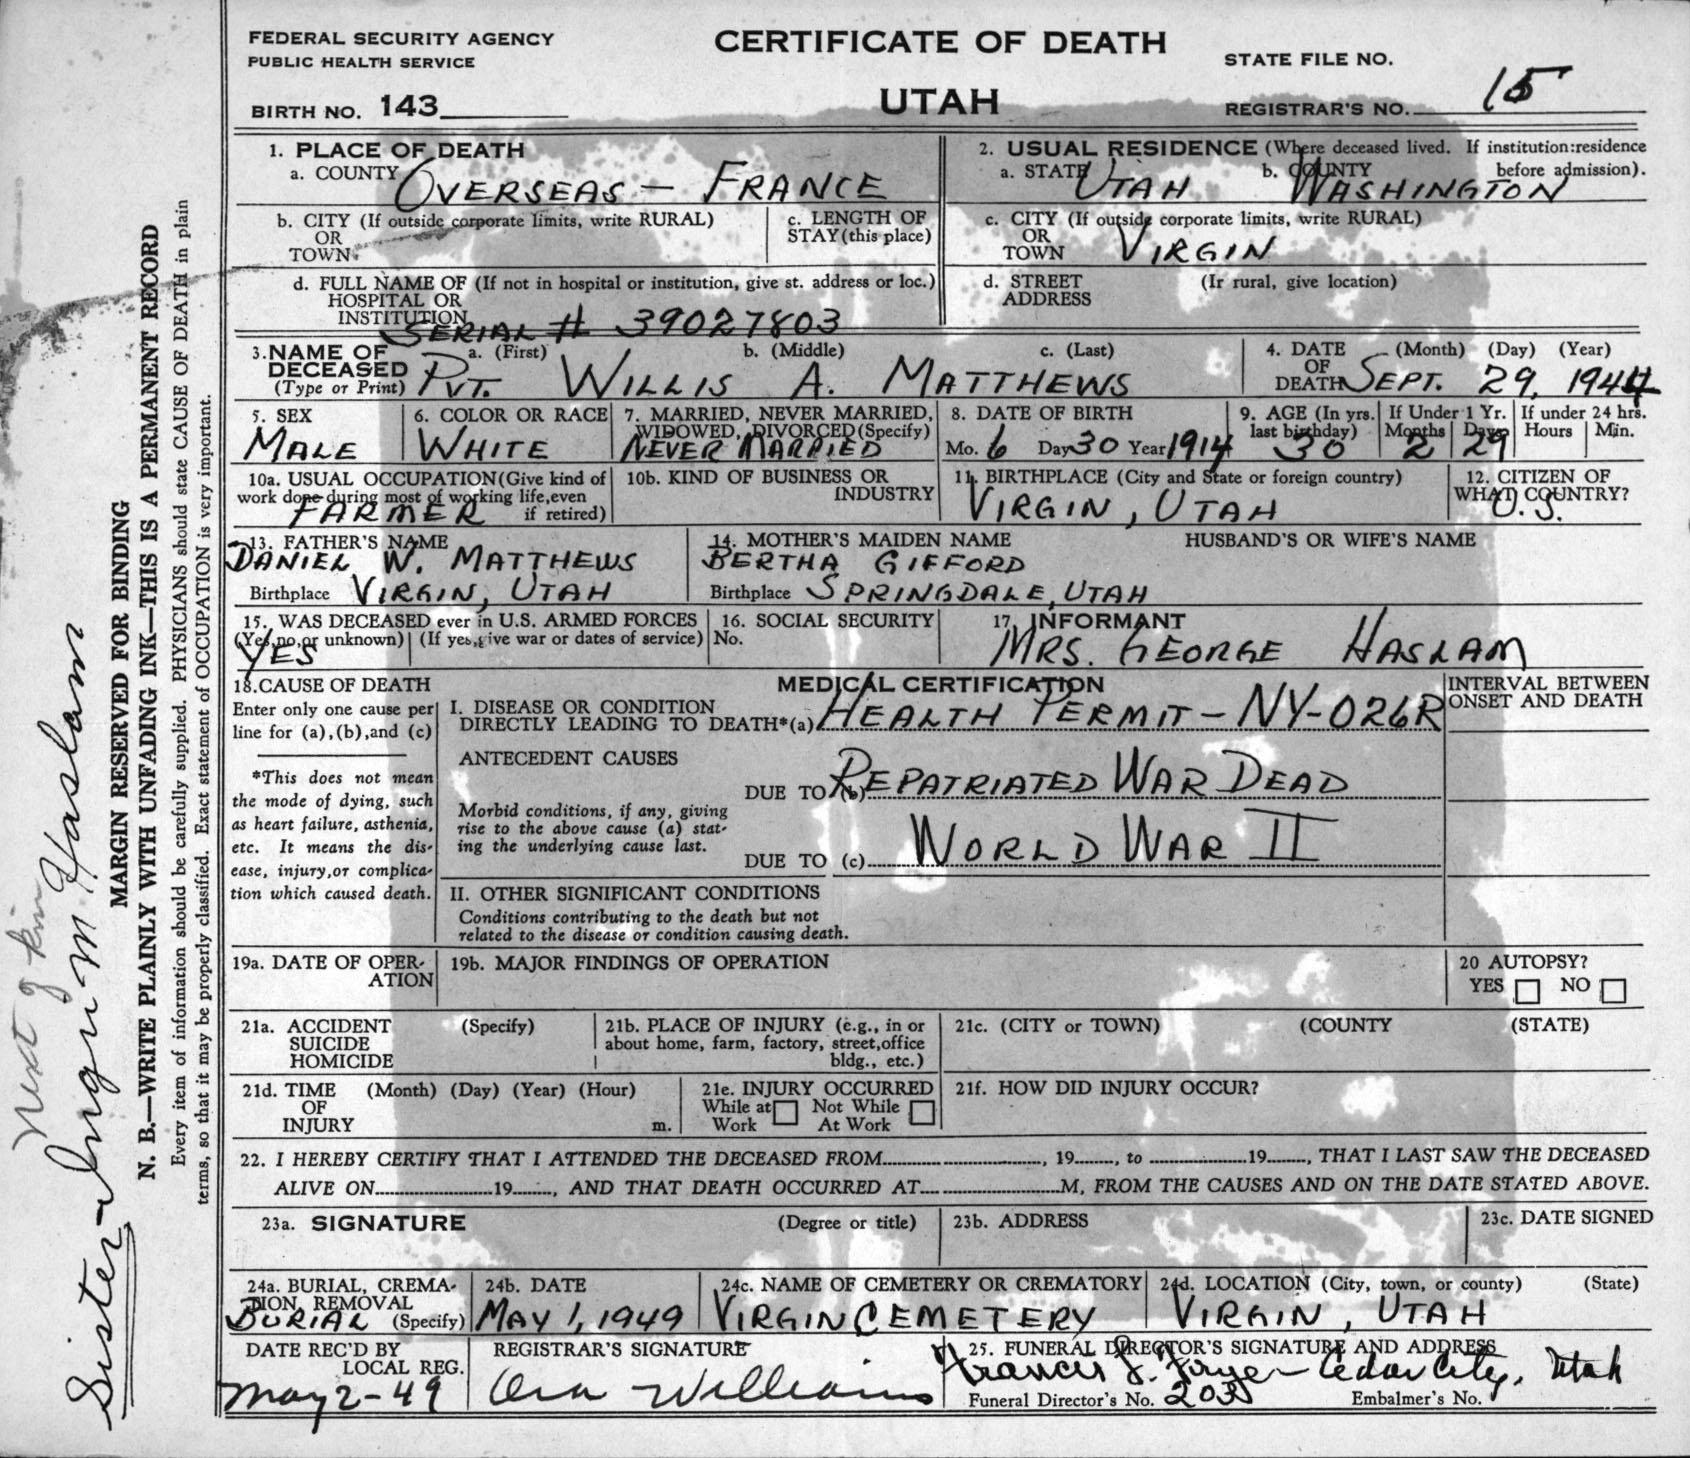 FEDERAL SECURITY AGENCY
PUBLIC HEALTH SERVICE
CERTIFICATE OF DEATH
UTAH
STATE FILE NO.
BIRTH NO. 143
REGISTRAR'S NO. 15
1. PLACE OF DEATH
a. COUNTY OVERSEAS — FRANCE
b. CITY (If outside corporate limits, write RURAL)
OR
TOWN
c. LENGTH OF
STAY (this place)
d. FULL NAME OF (If not in hospital or institution, give st. address or loc.)
HOSPITAL OR
INSTITUTION
SERIAL # 39027803
2. USUAL RESIDENCE (Where deceased lived. If institution:residence
before admission).
a. STATE UTAH b. COUNTY WASHINGTON
c. CITY (If outside corporate limits, write RURAL)
OR
TOWN VIRGIN
d. STREET (Ir rural, give location)
ADDRESS
3. NAME OF DECEASED (Type or Print)
a. (First) b. (Middle) c. (Last)
PVT. WILLIS A. MATTHEWS
4. DATE OF DEATH (Month) (Day) (Year)
SEPT. 29, 1944
5. SEX
MALE
6. COLOR OR RACE
WHITE
7. MARRIED, NEVER MARRIED,
WIDOWED, DIVORCED (Specify)
NEVER MARRIED
8. DATE OF BIRTH
Mo. 6 Day 30 Year 1914
9. AGE (In yrs.
last birthday) 30
If Under 1 Yr.
Months 2 Days 29
If under 24 hrs.
Hours Min.
10a. USUAL OCCUPATION (Give kind of
work done during most of working life, even
if retired)
FARMER
10b. KIND OF BUSINESS OR
INDUSTRY
11. BIRTHPLACE (City and State or foreign country)
VIRGIN, UTAH
12. CITIZEN OF
WHAT COUNTRY?
U.S.
13. FATHER'S NAME
DANIEL W. MATTHEWS
Birthplace VIRGIN, UTAH
14. MOTHER'S MAIDEN NAME
BERTHA GIFFORD
Birthplace SPRINGDALE, UTAH
HUSBAND'S OR WIFE'S NAME
15. WAS DECEASED ever in U.S. ARMED FORCES
(Yes, no, or unknown) (If yes, give war or dates of service)
YES
16. SOCIAL SECURITY
No.
17. INFORMANT
MRS. GEORGE HASLAM
18. CAUSE OF DEATH
Enter only one cause per
line for (a), (b), and (c)
*This does not mean
the mode of dying, such
as heart failure, asthenia,
etc. It means the dis-
ease, injury, or complica-
tion which caused death.
MEDICAL CERTIFICATION
I. DISEASE OR CONDITION
DIRECTLY LEADING TO DEATH*(a) HEALTH PERMIT — NY-026R
ANTECEDENT CAUSES
Morbid conditions, if any, giving
rise to the above cause (a) stat-
ing the underlying cause last.
DUE TO (b) REPATRIATED WAR DEAD
DUE TO (c) WORLD WAR II
II. OTHER SIGNIFICANT CONDITIONS
Conditions contributing to the death but not
related to the disease or condition causing death.
INTERVAL BETWEEN
ONSET AND DEATH
19a. DATE OF OPER-
ATION
19b. MAJOR FINDINGS OF OPERATION
20 AUTOPSY?
YES NO
21a. ACCIDENT (Specify)
SUICIDE
HOMICIDE
21b. PLACE OF INJURY (e.g., in or
about home, farm, factory, street, office
bldg., etc.)
21c. (CITY or TOWN) (COUNTY (STATE)
21d. TIME (Month) (Day) (Year) (Hour)
OF
INJURY m.
21e. INJURY OCCURRED
While at Work Not While At Work
21f. HOW DID INJURY OCCUR?
22. I HEREBY CERTIFY THAT I ATTENDED THE DECEASED FROM , 19 , to 19 , THAT I LAST SAW THE DECEASED
ALIVE ON 19 , AND THAT DEATH OCCURRED AT M, FROM THE CAUSES AND ON THE DATE STATED ABOVE.
23a. SIGNATURE (Degree or title)
23b. ADDRESS
23c. DATE SIGNED
24a. BURIAL, CREMA-
TION, REMOVAL
(Specify)
BURIAL
24b. DATE
MAY 1, 1949
24c. NAME OF CEMETERY OR CREMATORY
VIRGIN CEMETERY
24d. LOCATION (City, town, or county) (State)
VIRGIN, UTAH
DATE REC'D BY
LOCAL REG.
May 2-49
REGISTRAR'S SIGNATURE
Ora Williams
25. FUNERAL DIRECTOR'S SIGNATURE AND ADDRESS
Francis J. — Cedar City, Utah
Funeral Director's No. Embalmer's No.
MARGIN RESERVED FOR BINDING
N. B.—WRITE PLAINLY WITH UNFADING INK—THIS IS A PERMANENT RECORD
Every item of information should be carefully supplied. PHYSICIANS should state CAUSE OF DEATH in plain
terms, so that it may be properly classified. Exact statement of OCCUPATION is very important.
Next of kin
Sister - M Haslam